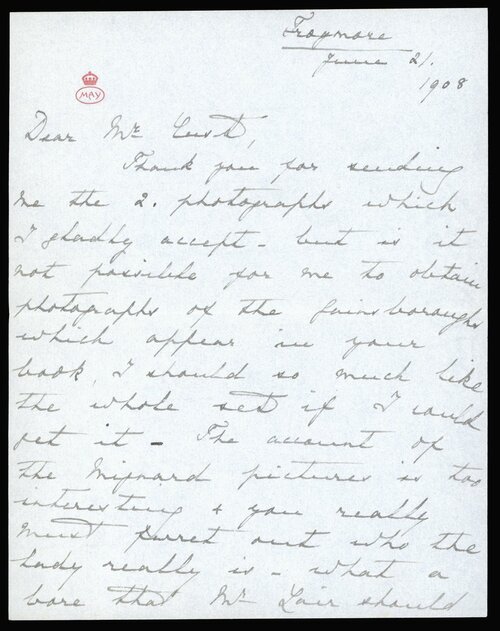 Frogmore
June 21.
1908
MAY
Dear Mr Cust,
Thank you for sending
me the 2. photographs which
I gladly accept - but is it
not possible for me to obtain
photographs of the Gainsboroughs
which appear in your
book, I should so much like
the whole set if I could
get it - The account of
the Mignard pictures is too
interesting & you really
must ferret out who the
lady really is - what a
bore that Mr Lair should